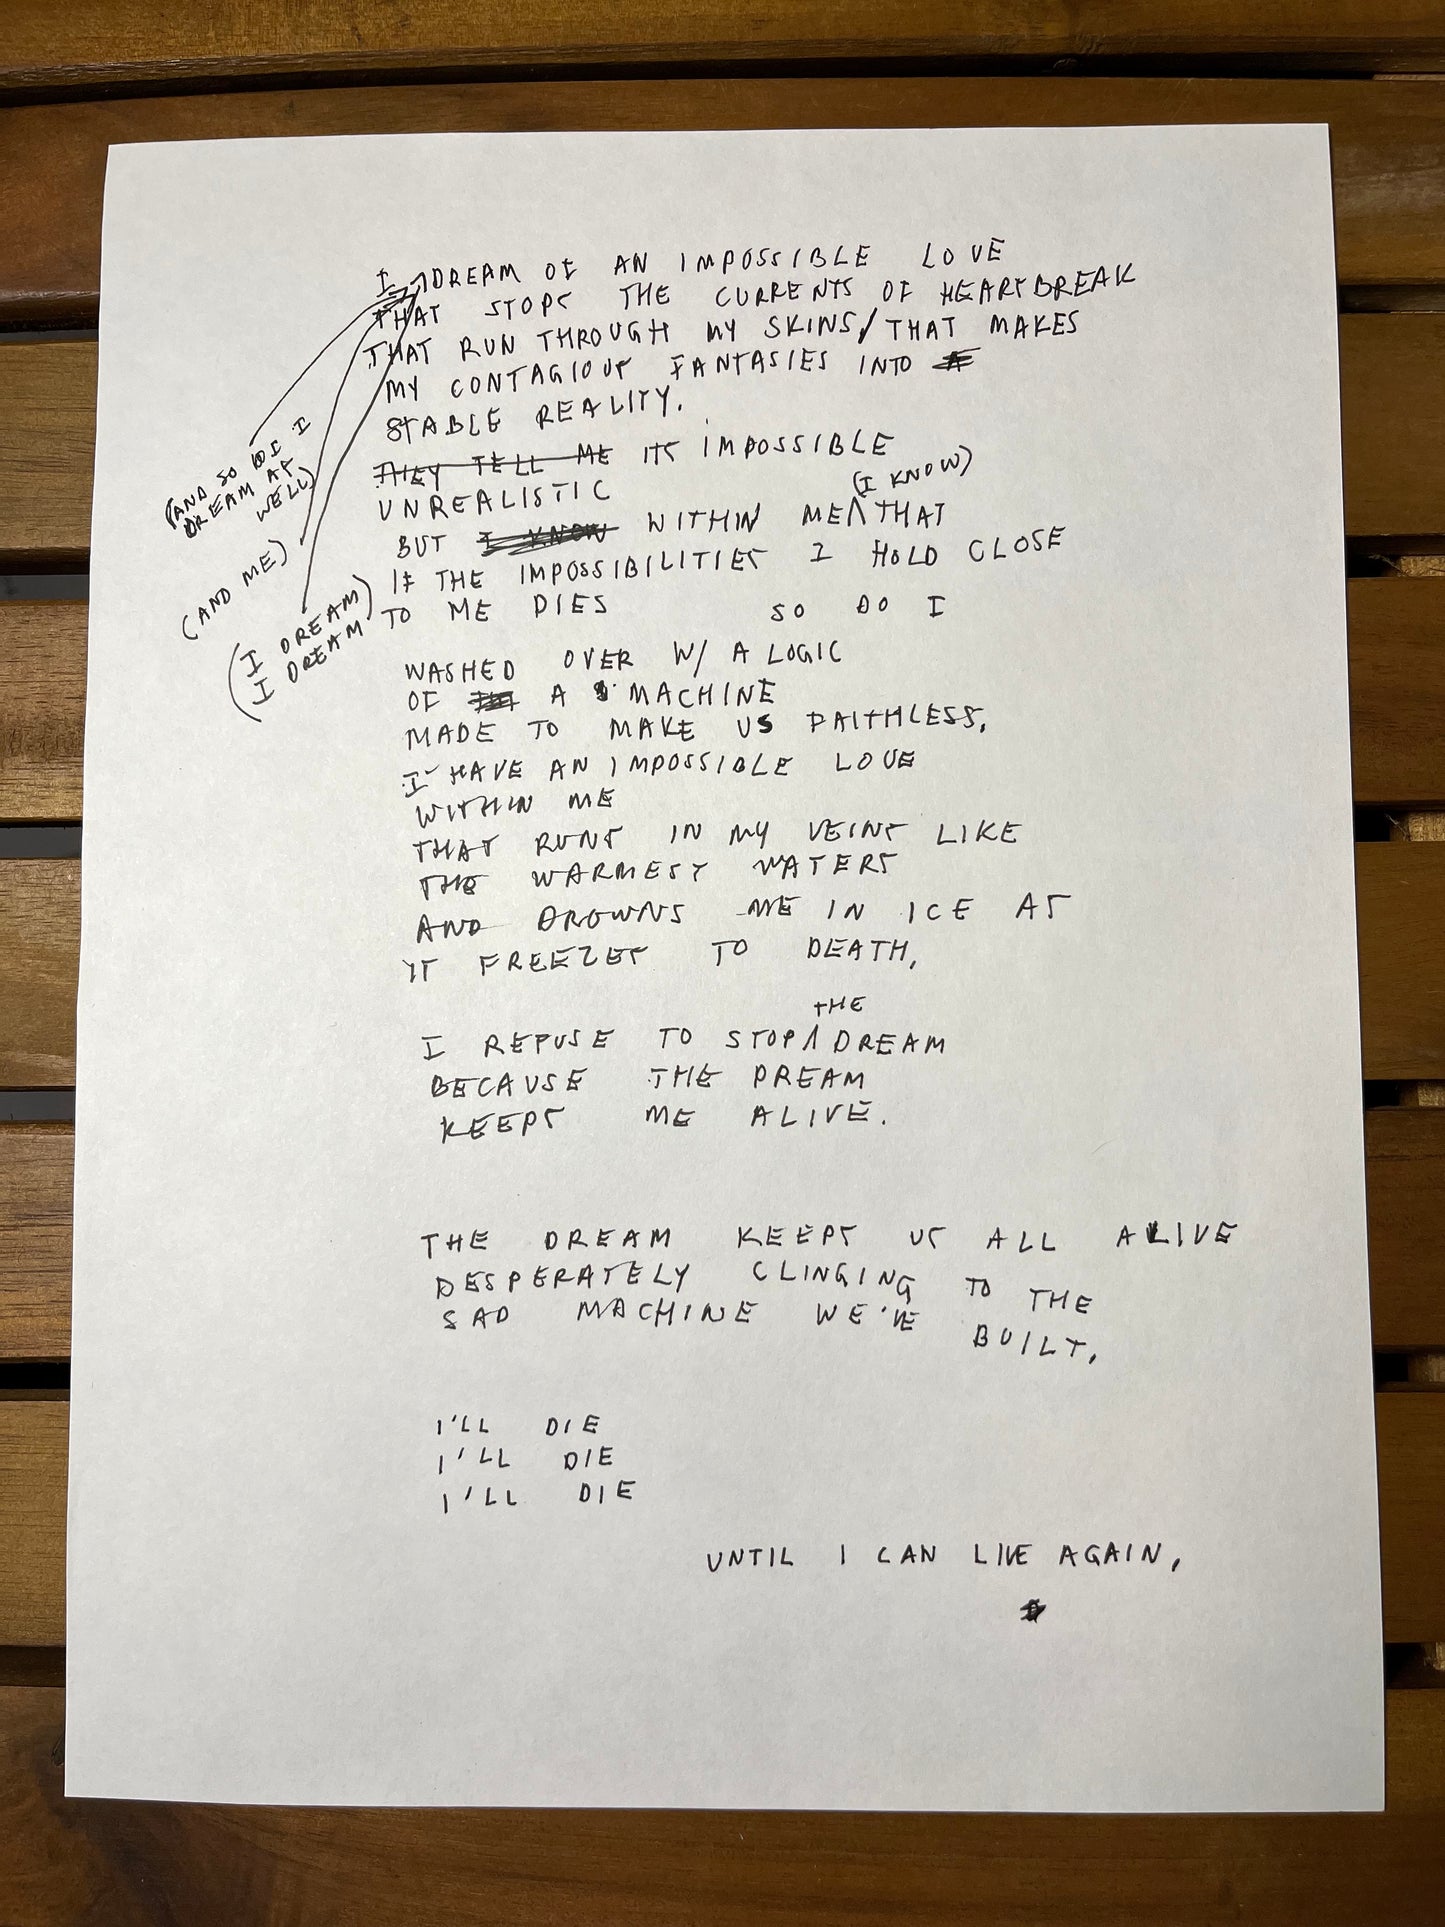 I DREAM OF AN IMPOSSIBLE LOVE
THAT STOPS THE CURRENTS OF HEARTBREAK
THAT RUN THROUGH MY SKINS/THAT MAKES
MY CONTAGIOUS FANTASIES INTO
STABLE REALITY.
THEY TELL ME ITS IMPOSSIBLE
UNREALISTIC
(I KNOW)
BUT I KNOW WITHIN ME THAT
IF THE IMPOSSIBILITIES I HOLD CLOSE
TO ME DIES SO DO I
(AND SO DO I
DREAM AS
WELL)
(AND ME)
(I DREAM)
I DREAM
WASHED OVER W/ A LOGIC
OF A MACHINE
MADE TO MAKE US FAITHLESS.
I HAVE AN IMPOSSIBLE LOVE
WITHIN ME
THAT RUNS IN MY VEINS LIKE
THE WARMEST WATERS
AND DROWNS ME IN ICE AS
IT FREEZES TO DEATH.
THE
I REFUSE TO STOP DREAM
BECAUSE THE DREAM
KEEPS ME ALIVE.
THE DREAM KEEPS US ALL ALIVE
DESPERATELY CLINGING TO THE
SAD MACHINE WE'VE BUILT.
I'LL DIE
I'LL DIE
I'LL DIE
UNTIL I CAN LIVE AGAIN.